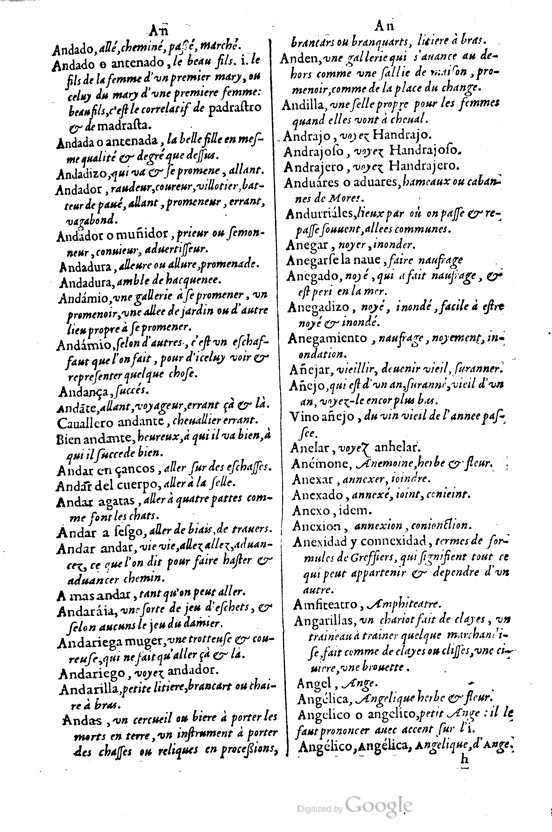 An
Andado, allé, cheminé, passé, marché.
Andado o antenado, le beau fils. i. le
fils de la femme d'vn premier mary, ou
celuy du mary d'vne premiere femme:
beaufils, c'est le correlatif de padrastro
& de madrasta.
Andada o antenada, la belle fille en mes-
me qualité & degré que dessus.
Andadizo, qui va & se promene, allant.
Andador, raudeur, coureur, villotier, bat-
teur de paué, allant, promeneur, errant,
vagabond.
Andador o muñidor, prieur ou semon-
neur, conuieur, aduertisseur.
Andadura, alleure ou allure, promenade.
Andadura, amble de hacquenee.
Andámio, vne gallerie à se promener, vn
promenoir, vne allee de jardin ou d'autre
lieu propre à se promener.
Andámio, selon d'autres, c'est vn eschaf-
faut que l'on fait, pour d'iceluy voir &
representer quelque chose.
Andança, succés.
Andāte, allant, voyageur, errant çà & là.
Cauallero andante, cheuallier errant.
Bien andante, heureux, à qui il va bien, à
qui il succede bien.
Andar en çancos, aller sur des eschasses.
Andar del cuerpo, aller à la selle.
Andar agatas, aller à quatre pattes com-
me font les chats.
Andar a sesgo, aller de biais, de trauers.
Andar andar, vie vie, allez allez, aduan-
cez, ce que l'on dit pour faire haster &
aduancer chemin.
A mas andar, tant qu'on peut aller.
Andaráia, vne sorte de jeu d'eschets, &
selon aucuns le jeu du damier.
Andariega muger, vne trotteuse & cou-
reuse, qui ne fait qu'aller çà & là.
Andariego, voyez andador.
Andarilla, petite litiere, brancart ou chai-
re à bras.
Andas, vn cercueil ou biere à porter les
morts en terre, vn instrument à porter
des chasses ou reliques en processions,
An
brancars ou branquarts, litiere à bras.
Anden, vne gallerie qui s'auance au de-
hors comme vne saillie de maison, pro-
menoir, comme de la place du change.
Andilla, vne selle propre pour les femmes
quand elles vont à cheual.
Andrajo, voyez Handrajo.
Andrajoso, voyez Handrajoso.
Andrajero, voyez Handrajero.
Anduáres o aduares, hameaux ou caban-
nes de Mores.
Andurriáles, lieux par où on passe & re-
passe souuent, allees communes.
Anegar, noyer, inonder.
Anegarse la naue, faire naufrage
Anegado, noyé, qui a fait naufrage, &
est peri en la mer.
Anegadizo, noyé, inondé, facile à estre
noyé & inondé.
Anegamiento, naufrage, noyement, in-
ondation.
Añejar, vieillir, deuenir vieil, suranner.
Añejo, qui est d'vn an, suranné, vieil d'vn
an, voyez-le encor plus bas.
Vino añejo, du vin vieil de l'annee pas-
see.
Anelar, voyez anhelar.
Anémone, Anemoine, herbe & fleur.
Anexar, annexer, ioindre.
Anexado, annexé, ioint, conieint.
Anexo, idem.
Anexion, annexion, conionction.
Anexidad y connexidad, termes de for-
mules de Greffiers, qui signifient tout ce
qui peut appartenir & dependre d'vn
autre.
Amfiteatro, Amphiteatre.
Angarillas, vn chariot fait de clayes, vn
traineau à trainer quelque marchandi-
se, fait comme de clayes ou clisses, vne ci-
uiere, vne brouette.
Angel, Ange.
Angélica, Angelique herbe & fleur.
Angelico o angelito, petit Ange: il le
faut prononcer auec accent sur l'i.
Angélico, Angélica, Angelique, d'Ange.
h
Digitized by Google